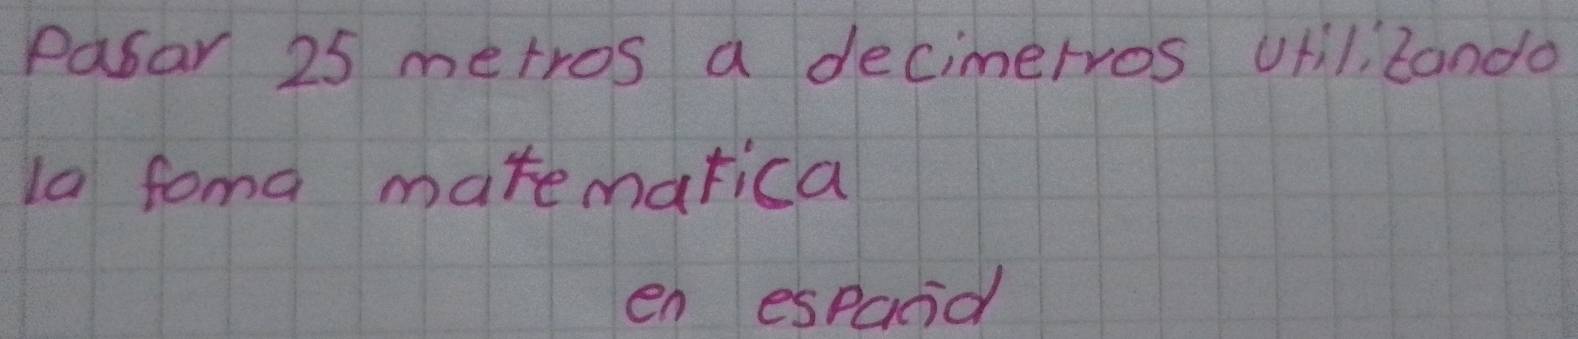 Pasar 25 metros a decimetros utilizando
la foma matematica
en español